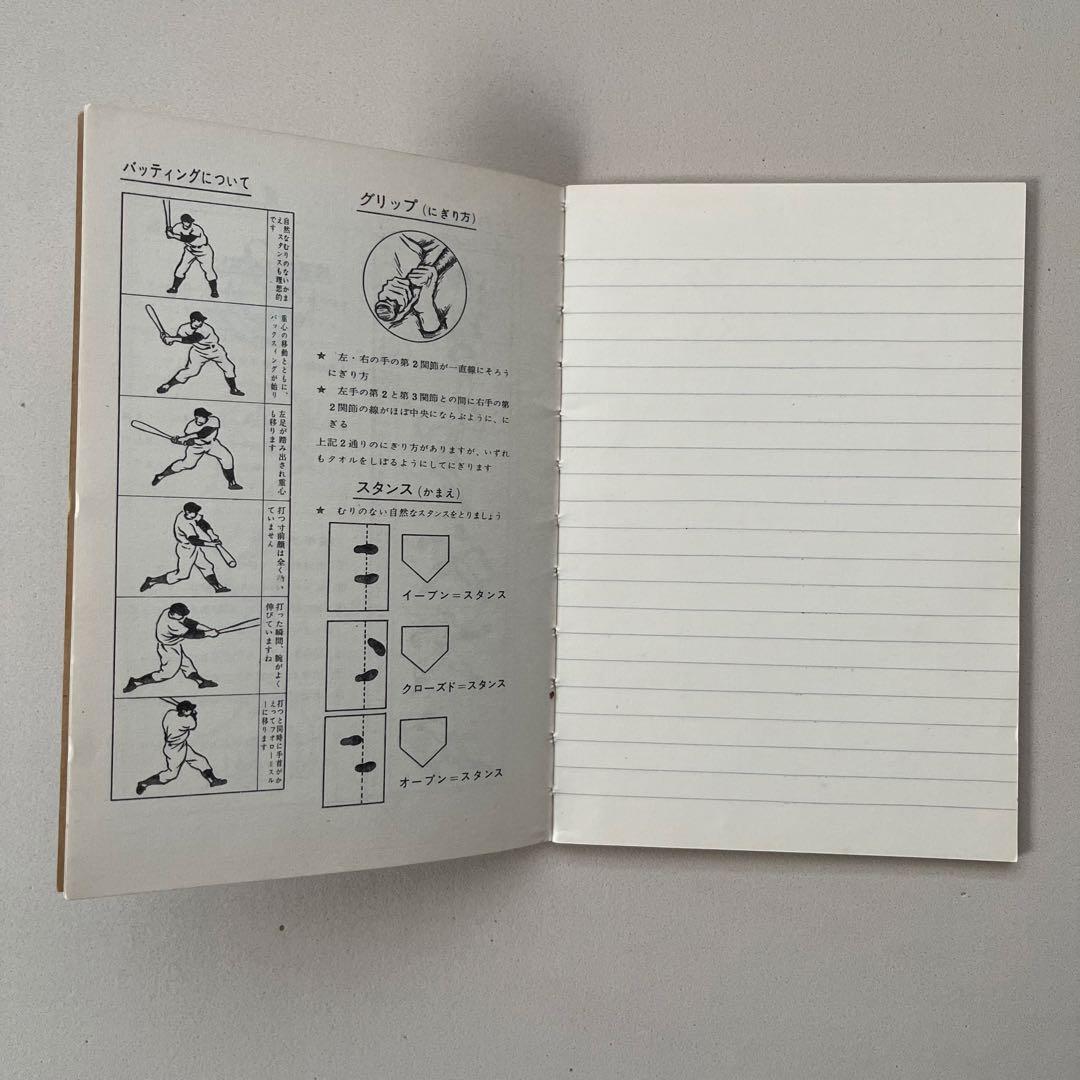 バッティングについて
自然なむりのないかま
え、スタンスも理想的
です
重心の移動とともに、
バックスイングが始り
左足が踏み出され重心
も移ります
打つ寸前顔は全く
ていません
打った瞬間、腕がよく
伸びていますね
打つと同時に手首がか
えってフォロースル
ーに移ります
グリップ(にぎり方)
★ 左・右の手の第2関節が一直線にそろう
にぎり方
★ 左手の第2と第3関節との間に右手の第
2関節の線がほぼ中央にならぶように、に
ぎる
上記2通りのにぎり方がありますが、いずれ
もタオルをしぼるようにしてにぎります
スタンス(かまえ)
★ むりのない自然なスタンスをとりましょう
イーブン=スタンス
クローズド=スタンス
オープン=スタンス